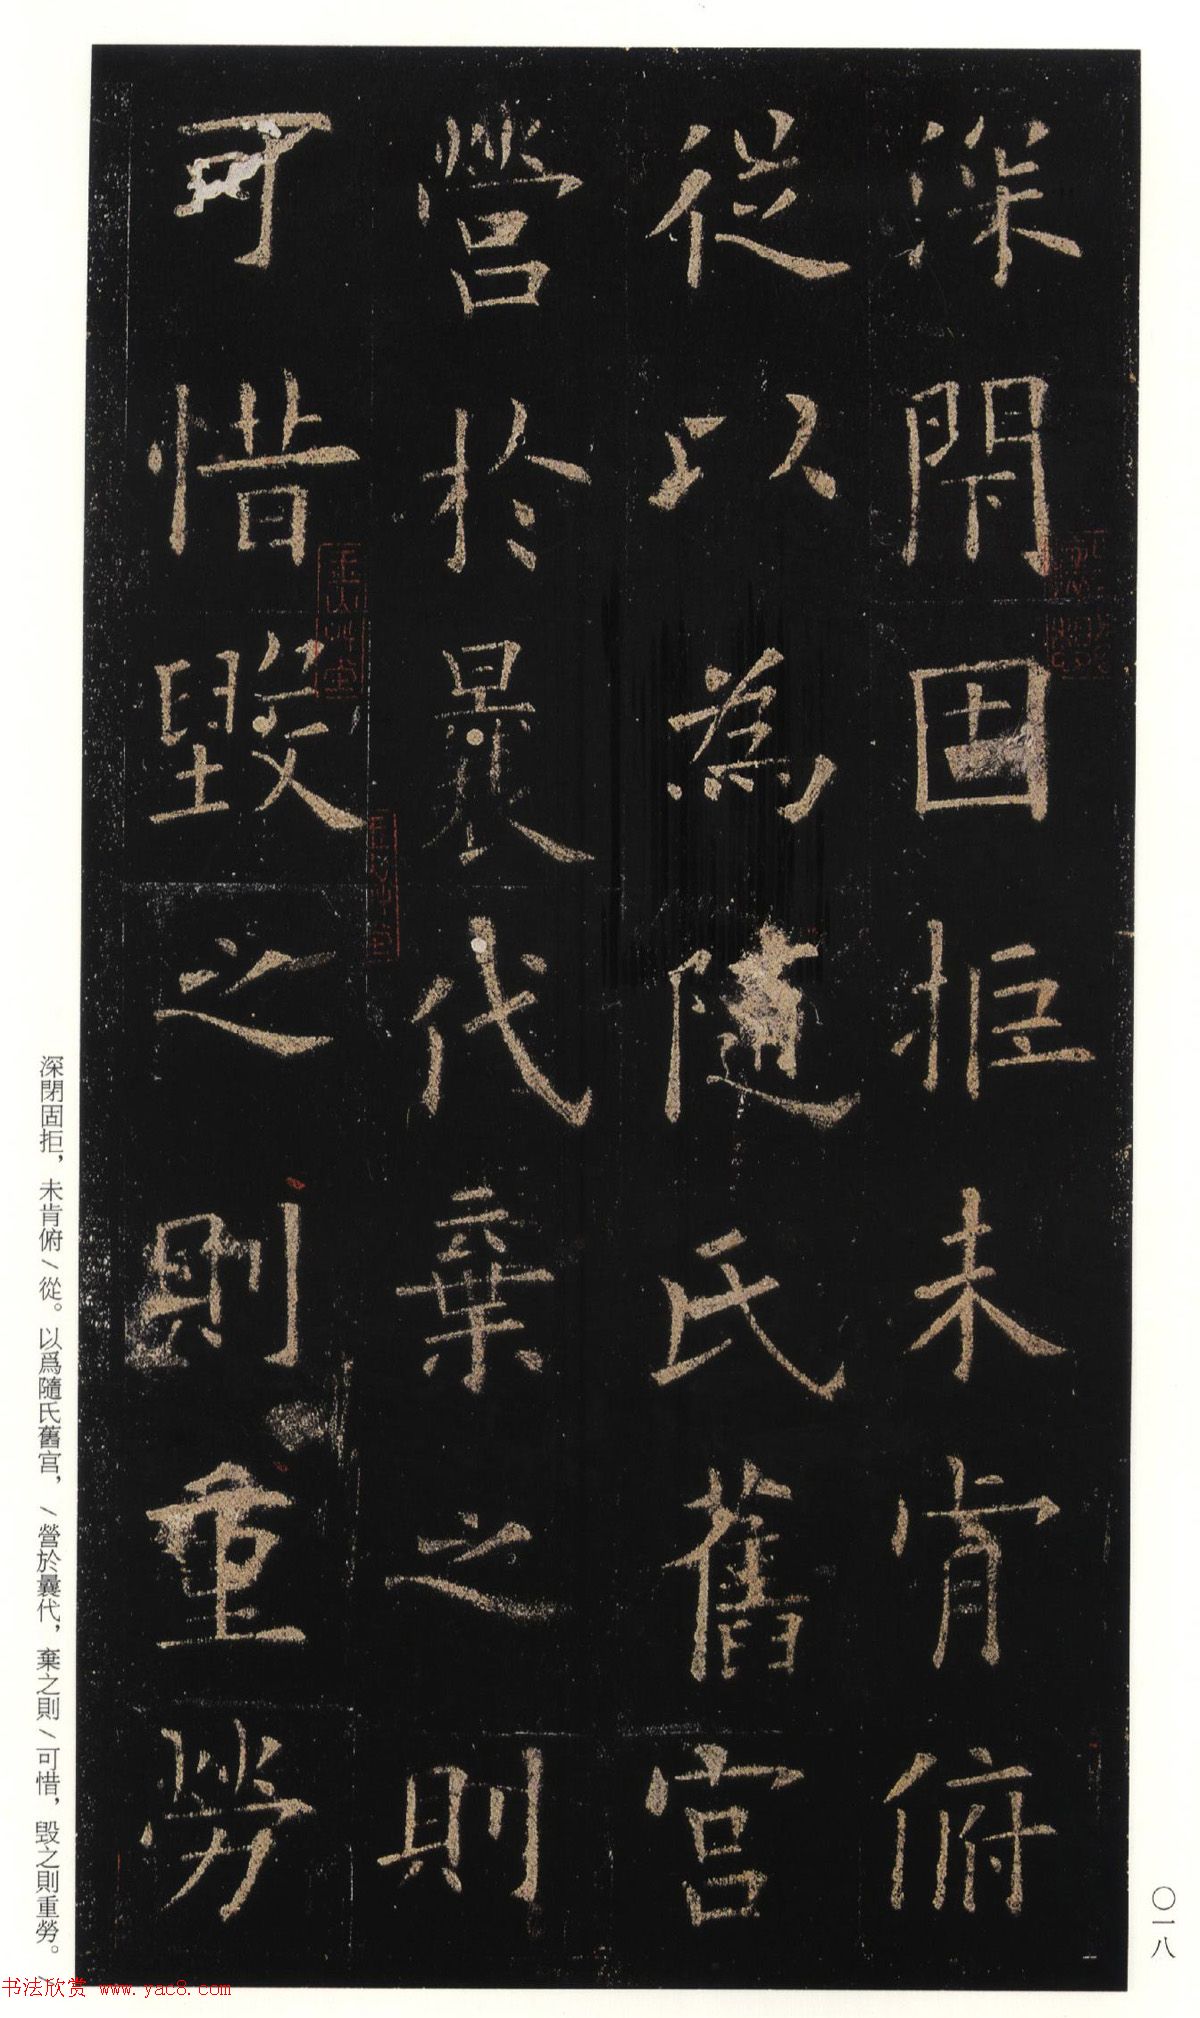 深閇固拒未肯俯
從以為隨氏舊宮
營於曩代棄之則
可惜毀之則重勞
深閉固拒，未肯俯\從。以爲隨氏舊宮，\營於曩代，棄之則\可惜，毀之則重勞。\
〇一八
书法欣赏 www.yac8.com